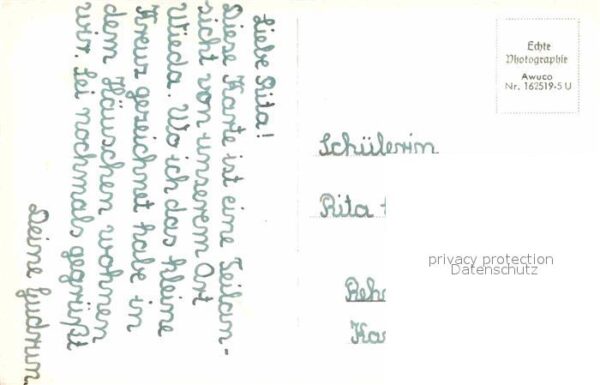 Liebe Rita!
Diese Karte ist eine Teilan-
sicht von unserem Ort
Wieda. Wo ich das kleine
Kreuz gezeichnet habe in
dem Häuschen wohnen
wir. Sei nochmals gegrüßt
Deine Gudrun.
Echte
Photographie
Awuco
Nr. 162519-5 U
Schülerin
Rita
privacy protection
Datenschutz